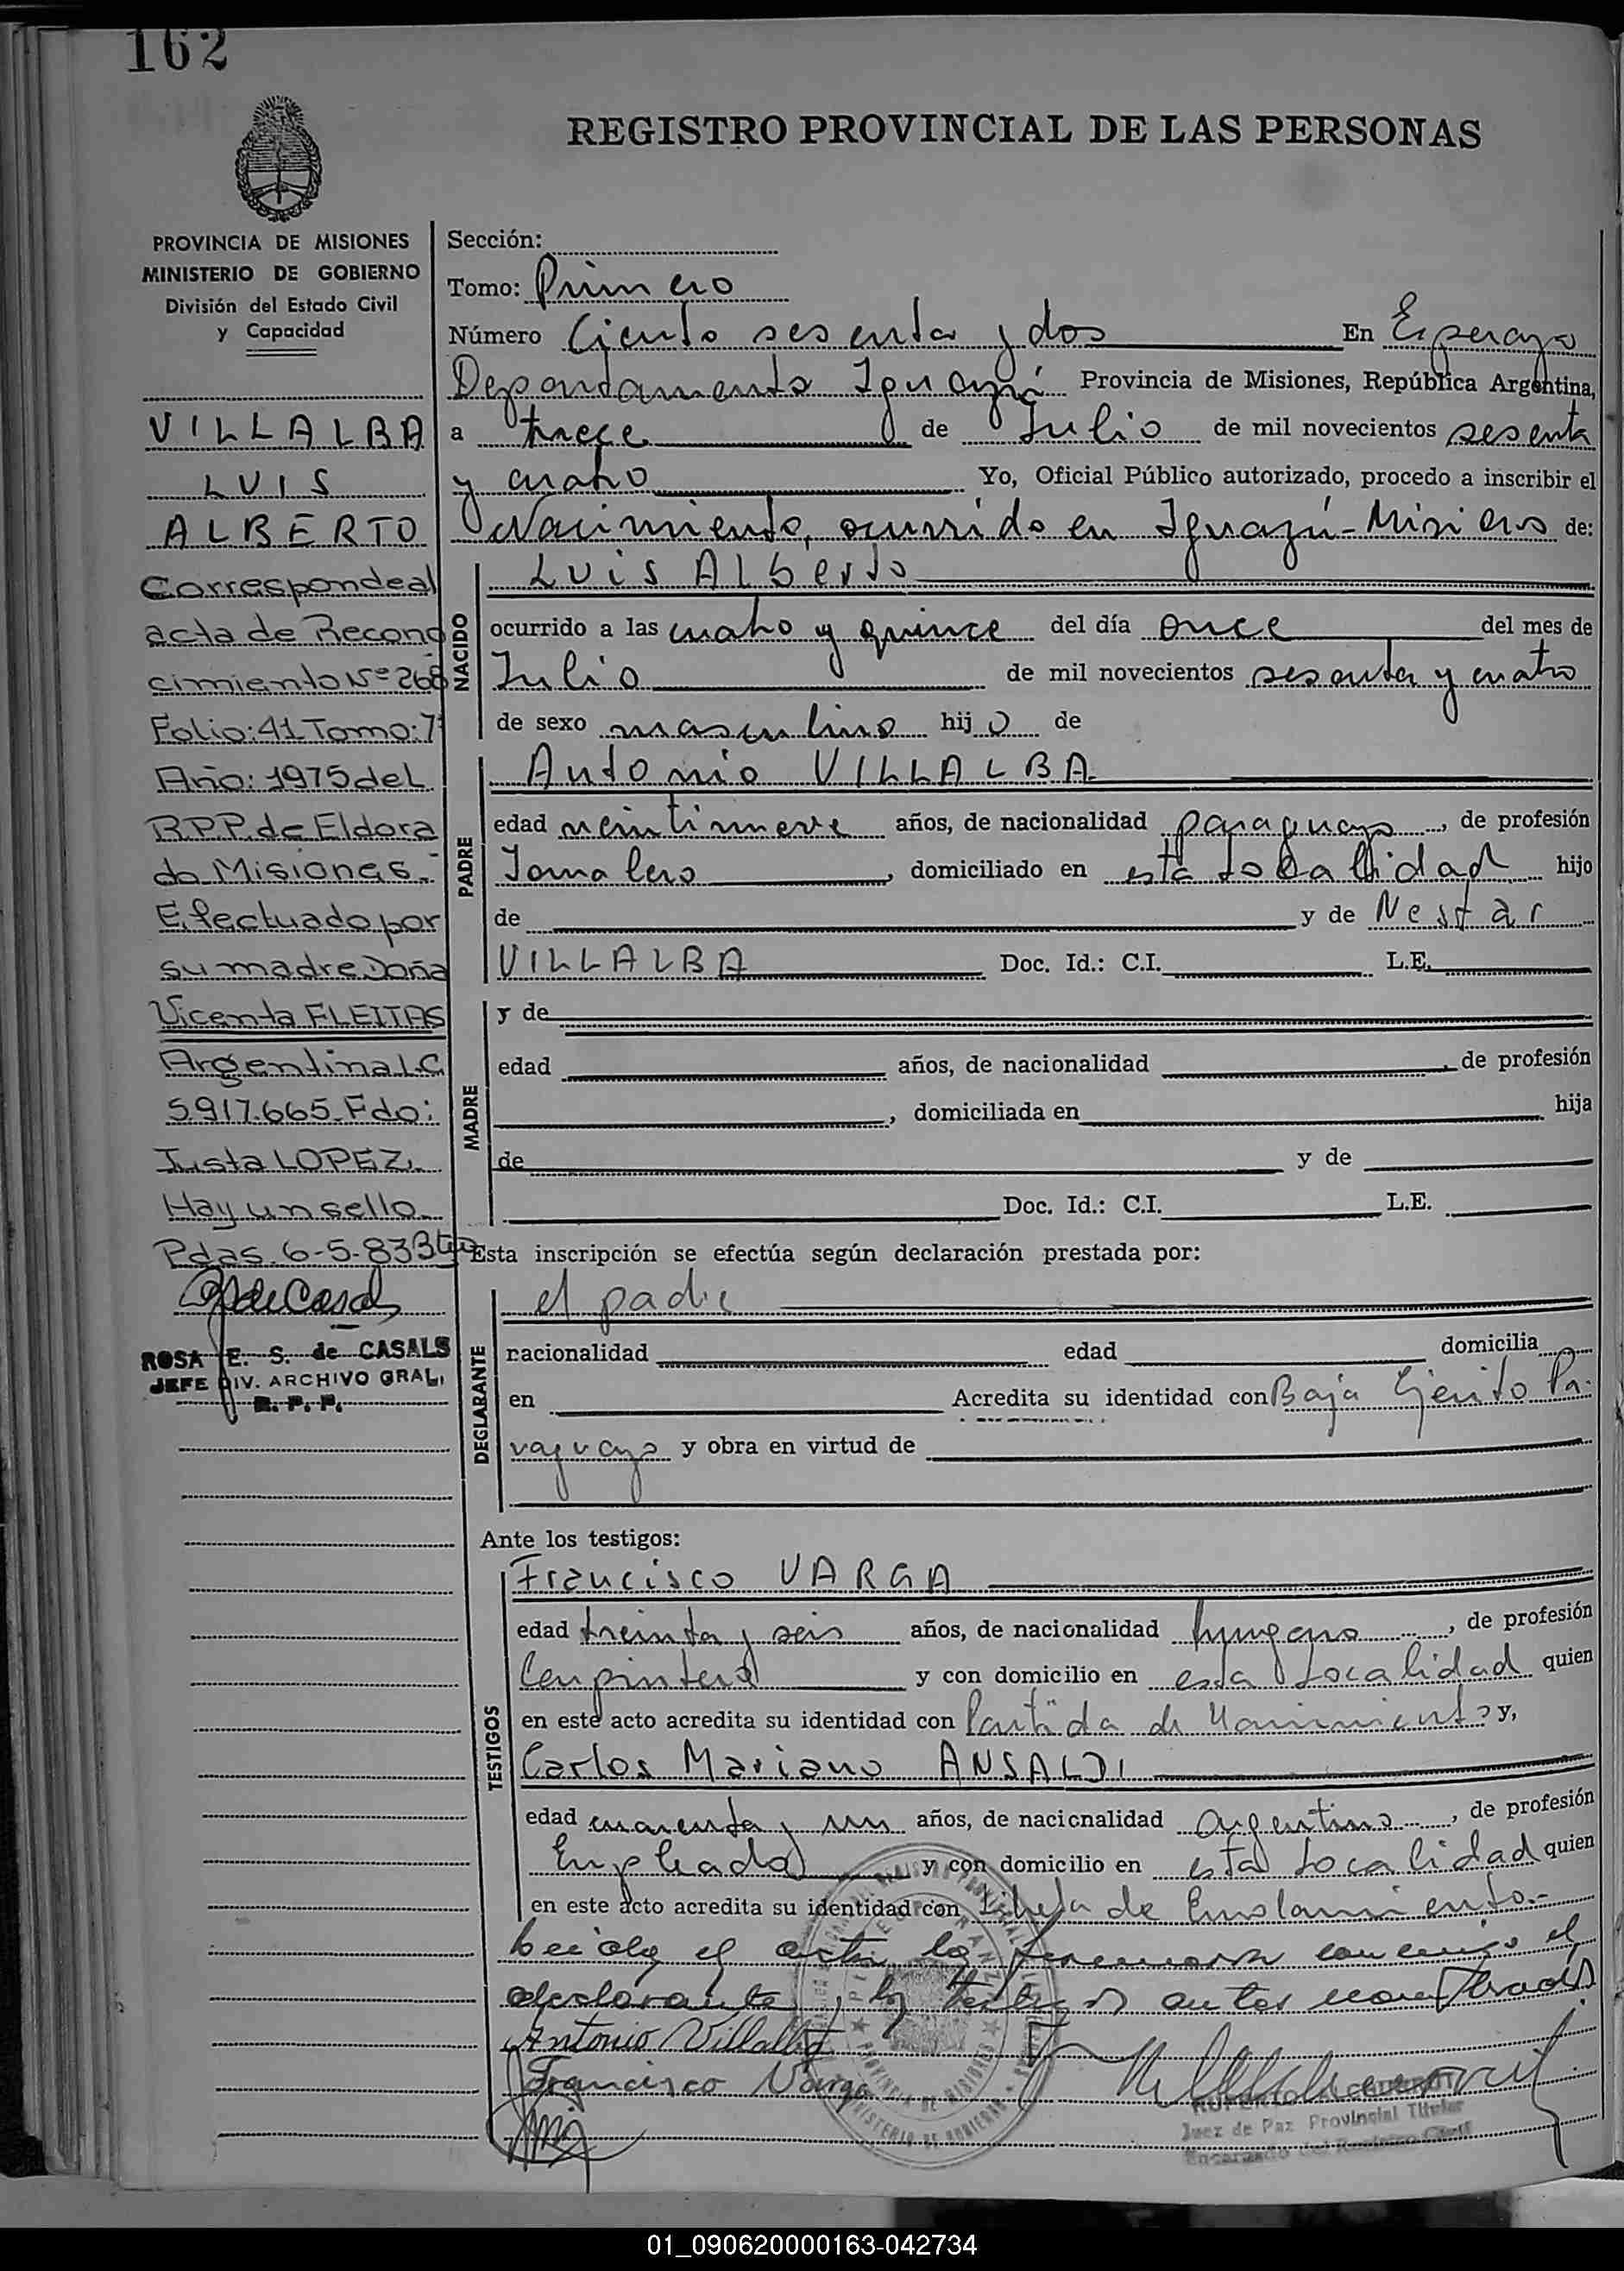 162
REGISTRO PROVINCIAL DE LAS PERSONAS
PROVINCIA DE MISIONES
MINISTERIO DE GOBIERNO
División del Estado Civil
y Capacidad
VILLALBA
LUIS
ALBERTO
Corresponde al
acta de Recono
cimiento Nº 268
Folio: 41 Tomo: 7º
Año: 1975 del
R.P.P. de Eldora
do Misiones.-
Efectuado por
su madre Doña
Vicenta FLEITAS
Argentina L.C.
5.917.665. Fdo:
Justa LOPEZ.
Hay un sello.
Pdas. 6-5-83
ROSA E. S. de CASALS
JEFE DIV. ARCHIVO GRAL.
R. P. P.
Sección:
Tomo: Primero
Número Ciento sesenta y dos En Esperanza
Departamento Iguazú Provincia de Misiones, República Argentina,
a trece de Julio de mil novecientos sesenta
y cuatro Yo, Oficial Público autorizado, procedo a inscribir el
Nacimiento, ocurrido en Iguazú-Misiones de:
NACIDO
Luis Alberto
ocurrido a las cuatro y quince del día once del mes de
Julio de mil novecientos sesenta y cuatro
de sexo masculino hij o de
PADRE
Antonio VILLALBA
edad veintinueve años, de nacionalidad paraguayo, de profesión
Jornalero, domiciliado en esta localidad hijo
de y de Nestar
VILLALBA Doc. Id.: C.I. L.E.
MADRE
y de
edad años, de nacionalidad , de profesión
, domiciliada en hija
de y de
Doc. Id.: C.I. L.E.
Esta inscripción se efectúa según declaración prestada por:
DECLARANTE
el padre
nacionalidad edad domicilia
en Acredita su identidad con Baja Ejercito Pa-
raguayo y obra en virtud de
Ante los testigos:
TESTIGOS
Francisco VARGA
edad treinta y seis años, de nacionalidad hungaro, de profesión
Carpintero y con domicilio en esta localidad quien
en este acto acredita su identidad con Partida de Nacimiento y,
Carlos Mariano ANSALDI
edad cuarenta y un años, de nacionalidad Argentino, de profesión
Empleado y con domicilio en esta localidad quien
en este acto acredita su identidad con Libreta de Enrolamiento.-
Leida el acta la firmaron conmigo el
declarante y los testigos antes nombrados
Antonio Villalba
Francisco Varga
Juez de Paz Provincial Titular
Encargado del Registro Civil
01_090620000163-042734